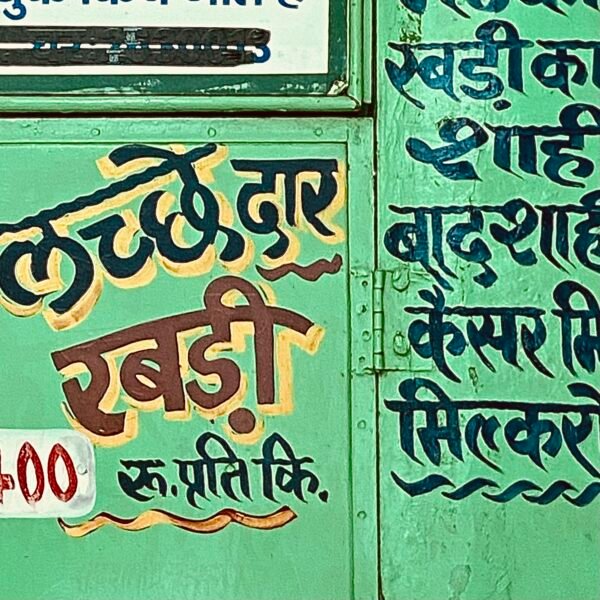 लच्छेदार
रबड़ी
400 रू. प्रति कि.
रबड़ी का
शाही
बादशाही
कैसर मि
मिल्करो